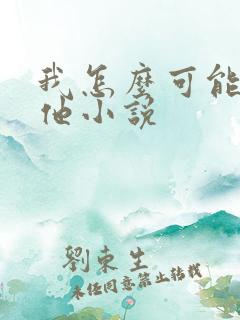 我怎麼可能
他小說
劉東生
未经同意禁止转载